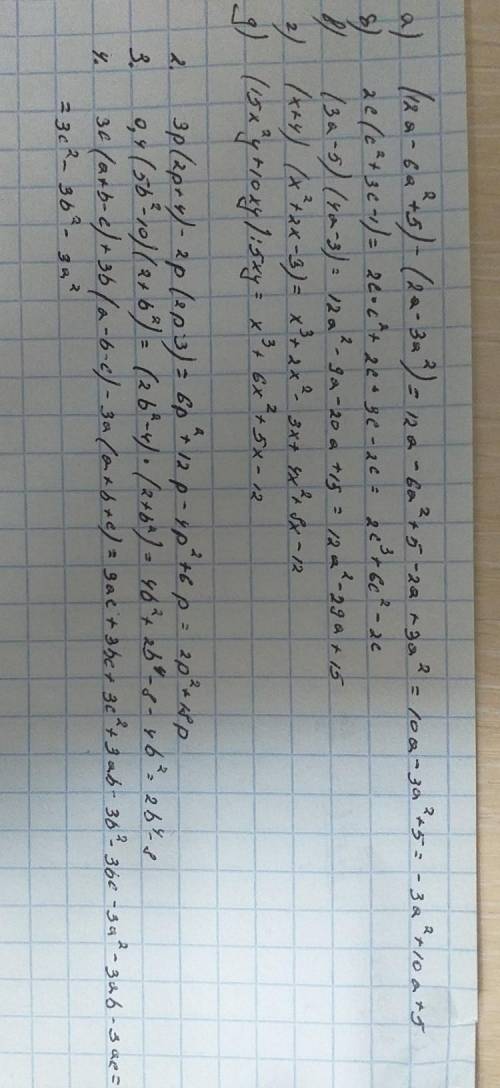 а) (12a - 6a²+5) - (2a - 3a²) = 12a - 6a² + 5 - 2a + 3a² = 10a - 3a² + 5 = - 3a² + 10a + 5
б) 2c (c² + 3c - 1) = 2c • c² + 2c • 3c - 2c = 2c³ + 6c² - 2c
в) (3a - 5) (4a - 3) = 12a² - 9a - 20a + 15 = 12a² - 29a + 15
г) (x+4) (x² + 2x - 3) = x³ + 2x² - 3x + 4x² + 8x - 12
д) (15x²y + 10xy) : 5xy = x³ + 6x² + 5x - 12
2. 3p(2p+4) - 2p (2p 3) = 6p² + 12p - 4p² + 6p = 2p² + 18p
3. 0,4 (5b² - 10) (2 + b²) = (2b² - 4) • (2 + b²) = 4b² + 2b⁴ - 8 - 4b² = 2b⁴ - 8
4. 3c (a+b-c) + 3b (a - b - c) - 3a (a + b + c) = 3ac + 3bc + 3c² + 3ab - 3b² - 3bc - 3a² - 3ab - 3ac =
= 3c² - 3b² - 3a²